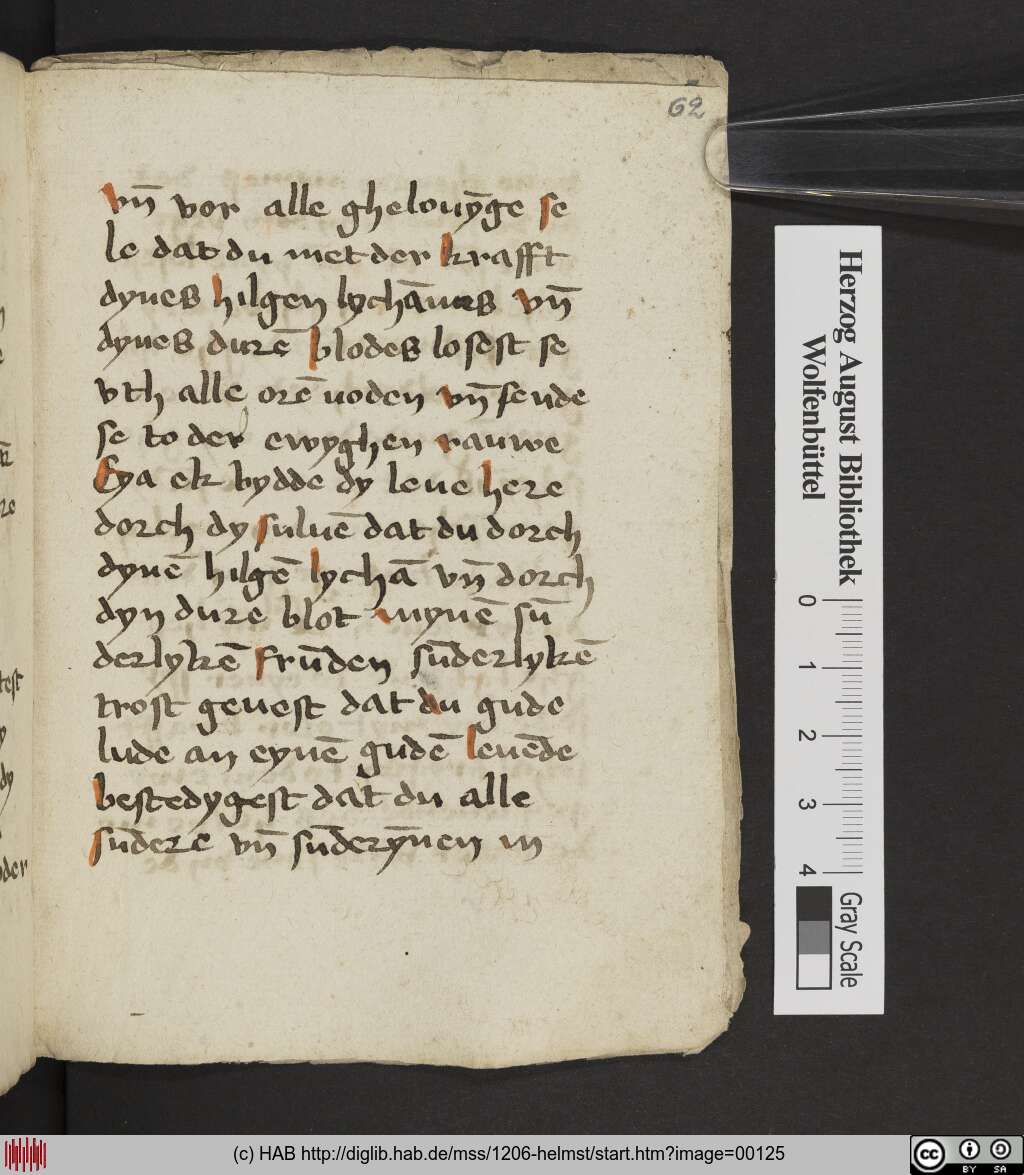 62
vn̄ vor alle ghelouȳge se
le dat du met der krafft
dynes hilgen lychāmes vn̄
dynes durē blodes losest se
vth alle orē noden vn̄ sende
se to der ewyghen rauwe
Eya ek bydde dy leue here
dorch dy suluē dat du dorch
dynē hilgē lychā vn̄ dorch
dyn dure blot mynē sū
derlykē frūden sūderlykē
trost geuest dat du gude
lude an eynē gudē leuēde
bestedygest dat du alle
sūdere vn̄ sūderȳnen in
Herzog August Bibliothek
Wolfenbüttel
0 1 2 3 4
Gray Scale
(c) HAB http://diglib.hab.de/mss/1206-helmst/start.htm?image=00125
cc BY SA